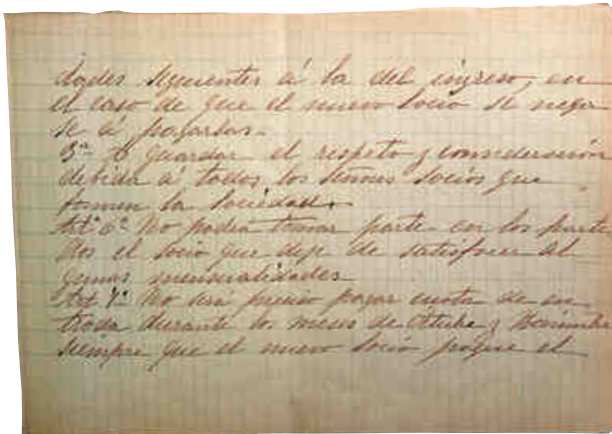 dades siguientes á la del ingreso, en
el caso de que el nuevo socio se nega
se á pagarlas.
3ª A guardar el respeto y consideración
debida á todos los señores socios que
forman la Sociedad.
Artº 6º No podrá tomar parte en los parti
dos el socio que deje de satisfacer al
gunas mensualidades
Art 7º No será preciso pagar cuota de en
trada durante los meses de Octubre y Noviembre
siempre que el nuevo socio pague el